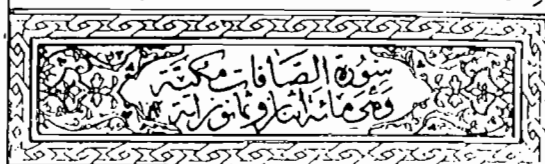 سورة الصافات مكية
وهى مائة اثنان وثمانون آية